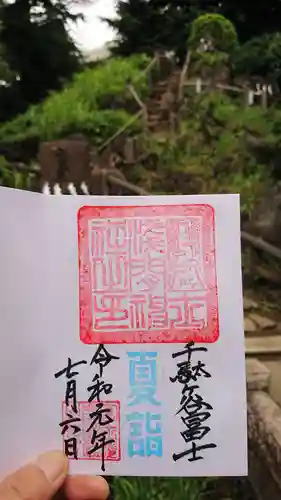 千駄谷富士
夏詣
令和元年
七月六日